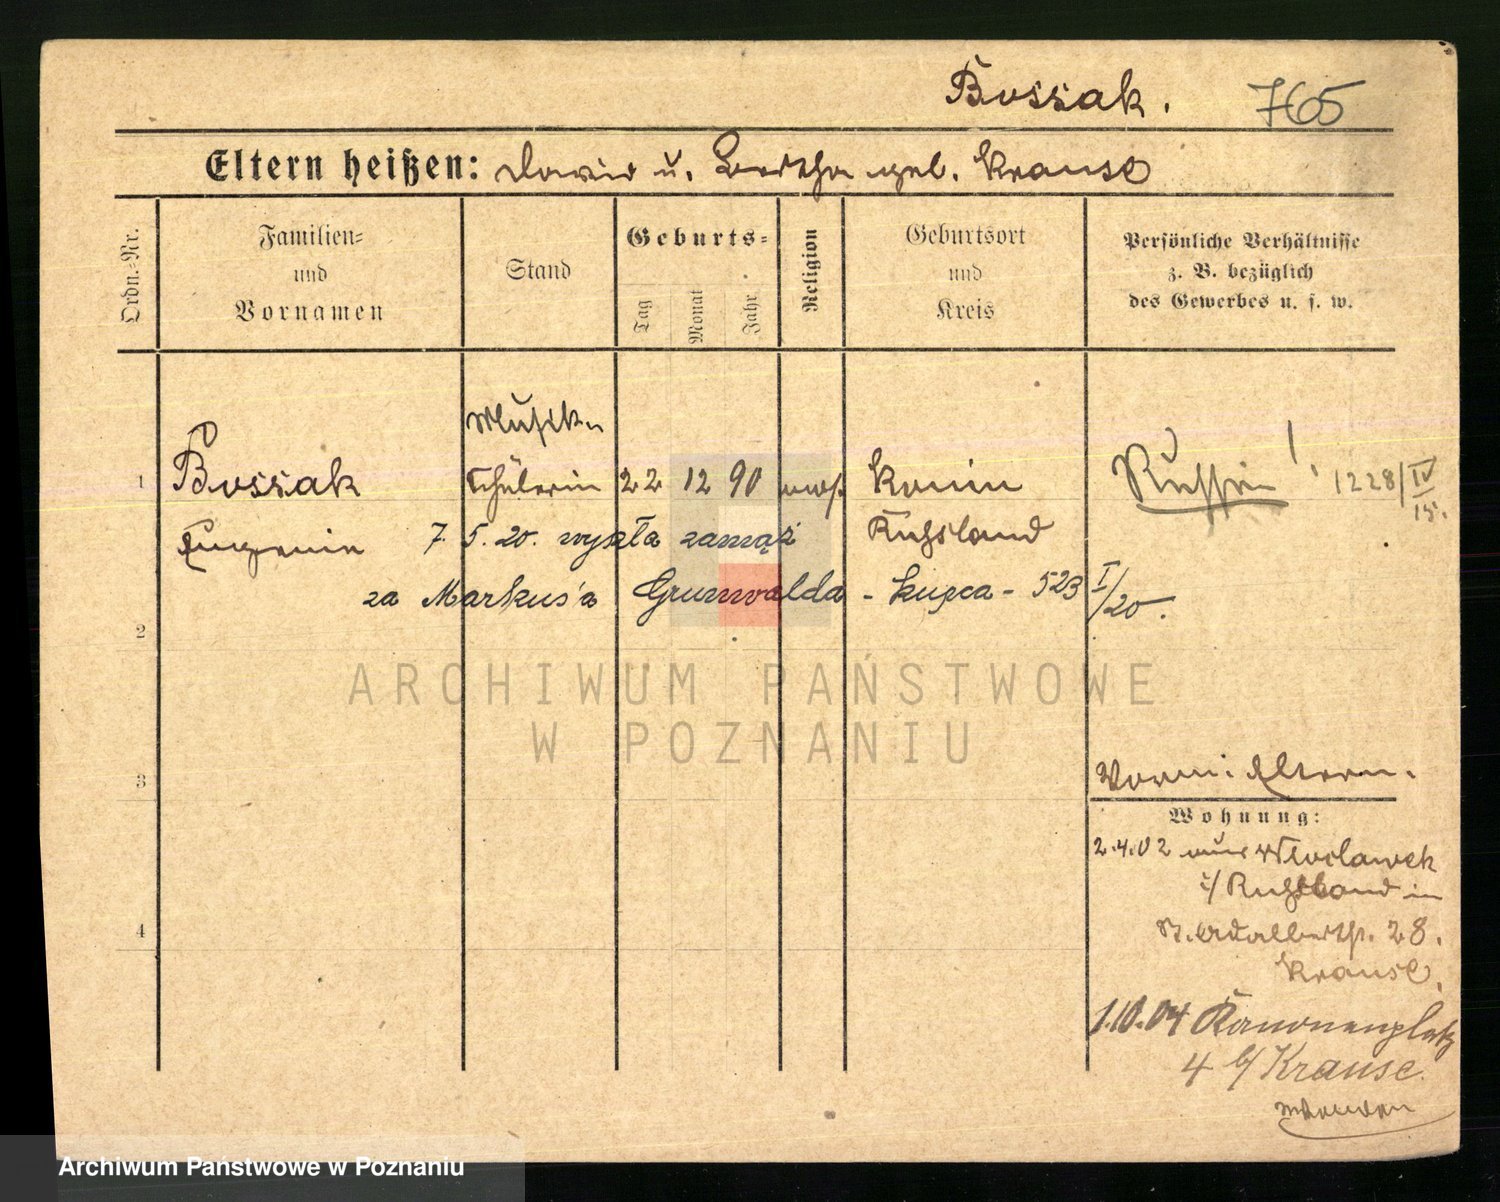 Bossak. 765
Eltern heißen: David u. Bertha geb. Krause
Ordn.-Nr.
Familien-
und
Vornamen
Stand
Geburts-
Tag
Monat
Jahr
Religion
Geburtsort
und
Kreis
Persönliche Verhältnisse
z. B. bezüglich
des Gewerbes u. s. w.
Musik-
1 Bossak schülerin 22 12 90 mos. Konin Russin! 1228/IV
15.
Eugenie 7. 5. 20. wyszła zamąż Russland
za Markus'a Grunwalda - kupca - 523 I/20.
2
3
4
Eltern.
Wohnung:
2.4.02 aus Wloclawek
i/ Russland in
St. Adalbertst. 28.
Krause.
1.10.04 Kanonenplatz
4 b/ Krause.
ARCHIWUM PAŃSTWOWE
W POZNANIU
Archiwum Państwowe w Poznaniu